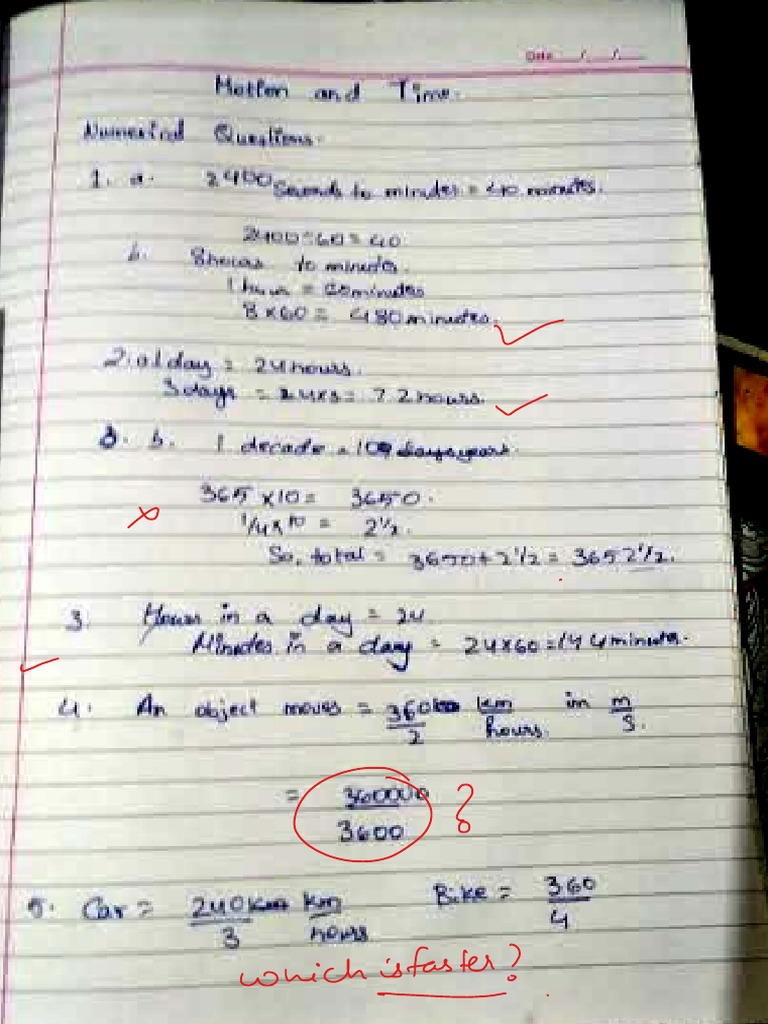 Date __/__/__
Motion and Time.
Numerical Questions.
1. a. 2400 Seconds to minutes = 40 minutes.
2400÷60=40
b. 8 hours to minutes.
1 hour = 60 minutes
8 × 60 = 480 minutes.
2. a 1 day = 24 hours.
3 days = 24×3= 72 hours.
b. 1 decade = 10 years.
365 × 10 = 3650.
1/4 × 10 = 2 1/2.
So, total = 3650 + 2 1/2 = 3652 1/2.
3. Hours in a day = 24
Minutes in a day = 24×60=144 minutes.
4. An object moves = 360/2 km/hours in m/s.
= 360000/3600 ?
5. Car = 240/3 km/hours Bike = 360/4
which is faster?